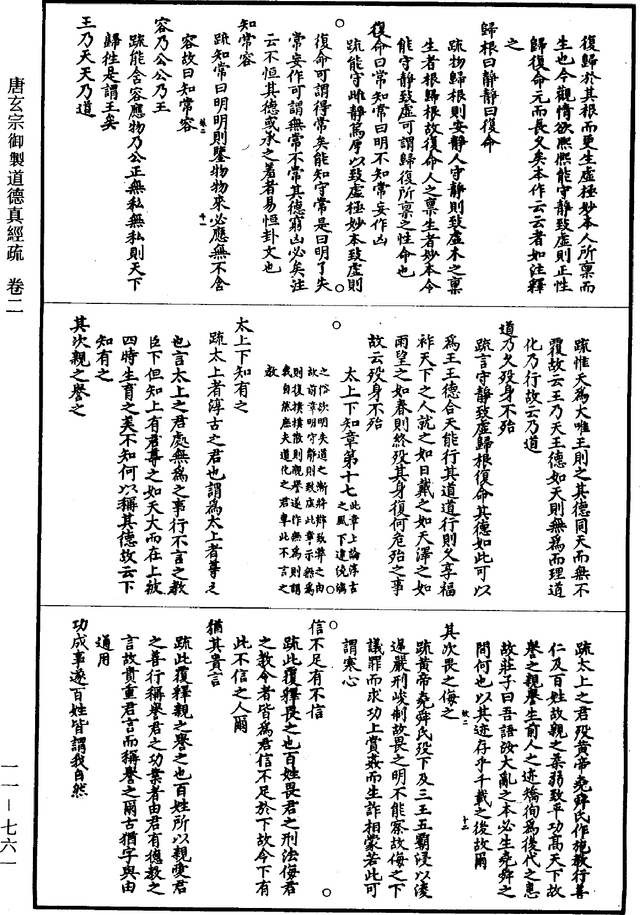 復歸於其根而更生虛極妙本人所禀而
生也今觀情欲熙熙能守靜致虛則正性
歸復命元而長久矣本作云云者如注釋
之
歸根曰靜靜曰復命
疏物歸根則安靜人守靜則致虛木之禀
生者根歸根故復命人之禀生者妙本今
能守靜致虛可謂歸復所禀之性命也
復命曰常知常曰明不知常妄作凶
疏能守雌靜篤厚以致虛極妙本致虛則
復命可謂得常矣能知守常是曰明了失
常妄作可謂無常不常其德窮凶必矣注
云不恒其德或承之羞者易恒卦文也
知常容
疏知常曰明明則鑒物物來必應無不含
容故曰知常容
容乃公公乃王
疏能含容應物乃公正無私無私則天下
歸往是謂王矣
王乃天天乃道
疏惟天為大唯王則之其德同天而無不
覆故云王乃天王德如天則無為而理道
化乃行故云乃道
道乃久歿身不殆
疏言守靜致虛歸根復命其德如此可以
為王王德合天能行其道道行則久享福
祚天下之人就之如日戴之如天澤之如
雨望之如春則終歿其身復何危殆之事
故云歿身不殆
太上下知章第十七
此章上論淳古之風下逮澆漓
之俗欲明失道之漸將辯致弊之由
故前章明守靜則致虛此章示縣為
則復樸樸散則親譽遂作無為則謂
我自然庶夫道化之君專此不言之
教
太上下知有之
疏太上者淳古之君也謂為太上者尊之
也言太上之君處無為之事行不言之教
臣下但知上有君尊之如天大而在上被
四時生育之美不知何以稱其德故云下
知有之
其次親之譽之
疏太上之君歿黃帝堯舜氏作施教行善
仁及百姓故親之柔弱致平功高天下故
譽之親譽生前人之迹矯徇為後代之患
故莊子曰吾語汝大亂之本必生堯舜之
間何也以其迹存乎千載之後故爾
其次畏之侮之
疏黃帝堯舜氏歿下及三王五霸浸以凌
遲嚴刑峻制故畏之明不能察故侮之下
議罪而求功上賞姦而生詐相蒙若此可
謂寒心
信不足有不信
疏此覆釋畏之也百姓畏君之刑法侮君
之教令者皆為君信不足於下故令下有
此不信之人爾
猶其貴言
疏此覆釋親之譽之也百姓所以親愛君
之善行稱譽君之功業者由君有德教之
言故貴重君言而稱譽之爾古猶字與由
通用
功成事遂百姓皆謂我自然
唐玄宗御製道德真經疏 卷二
一一－七六一